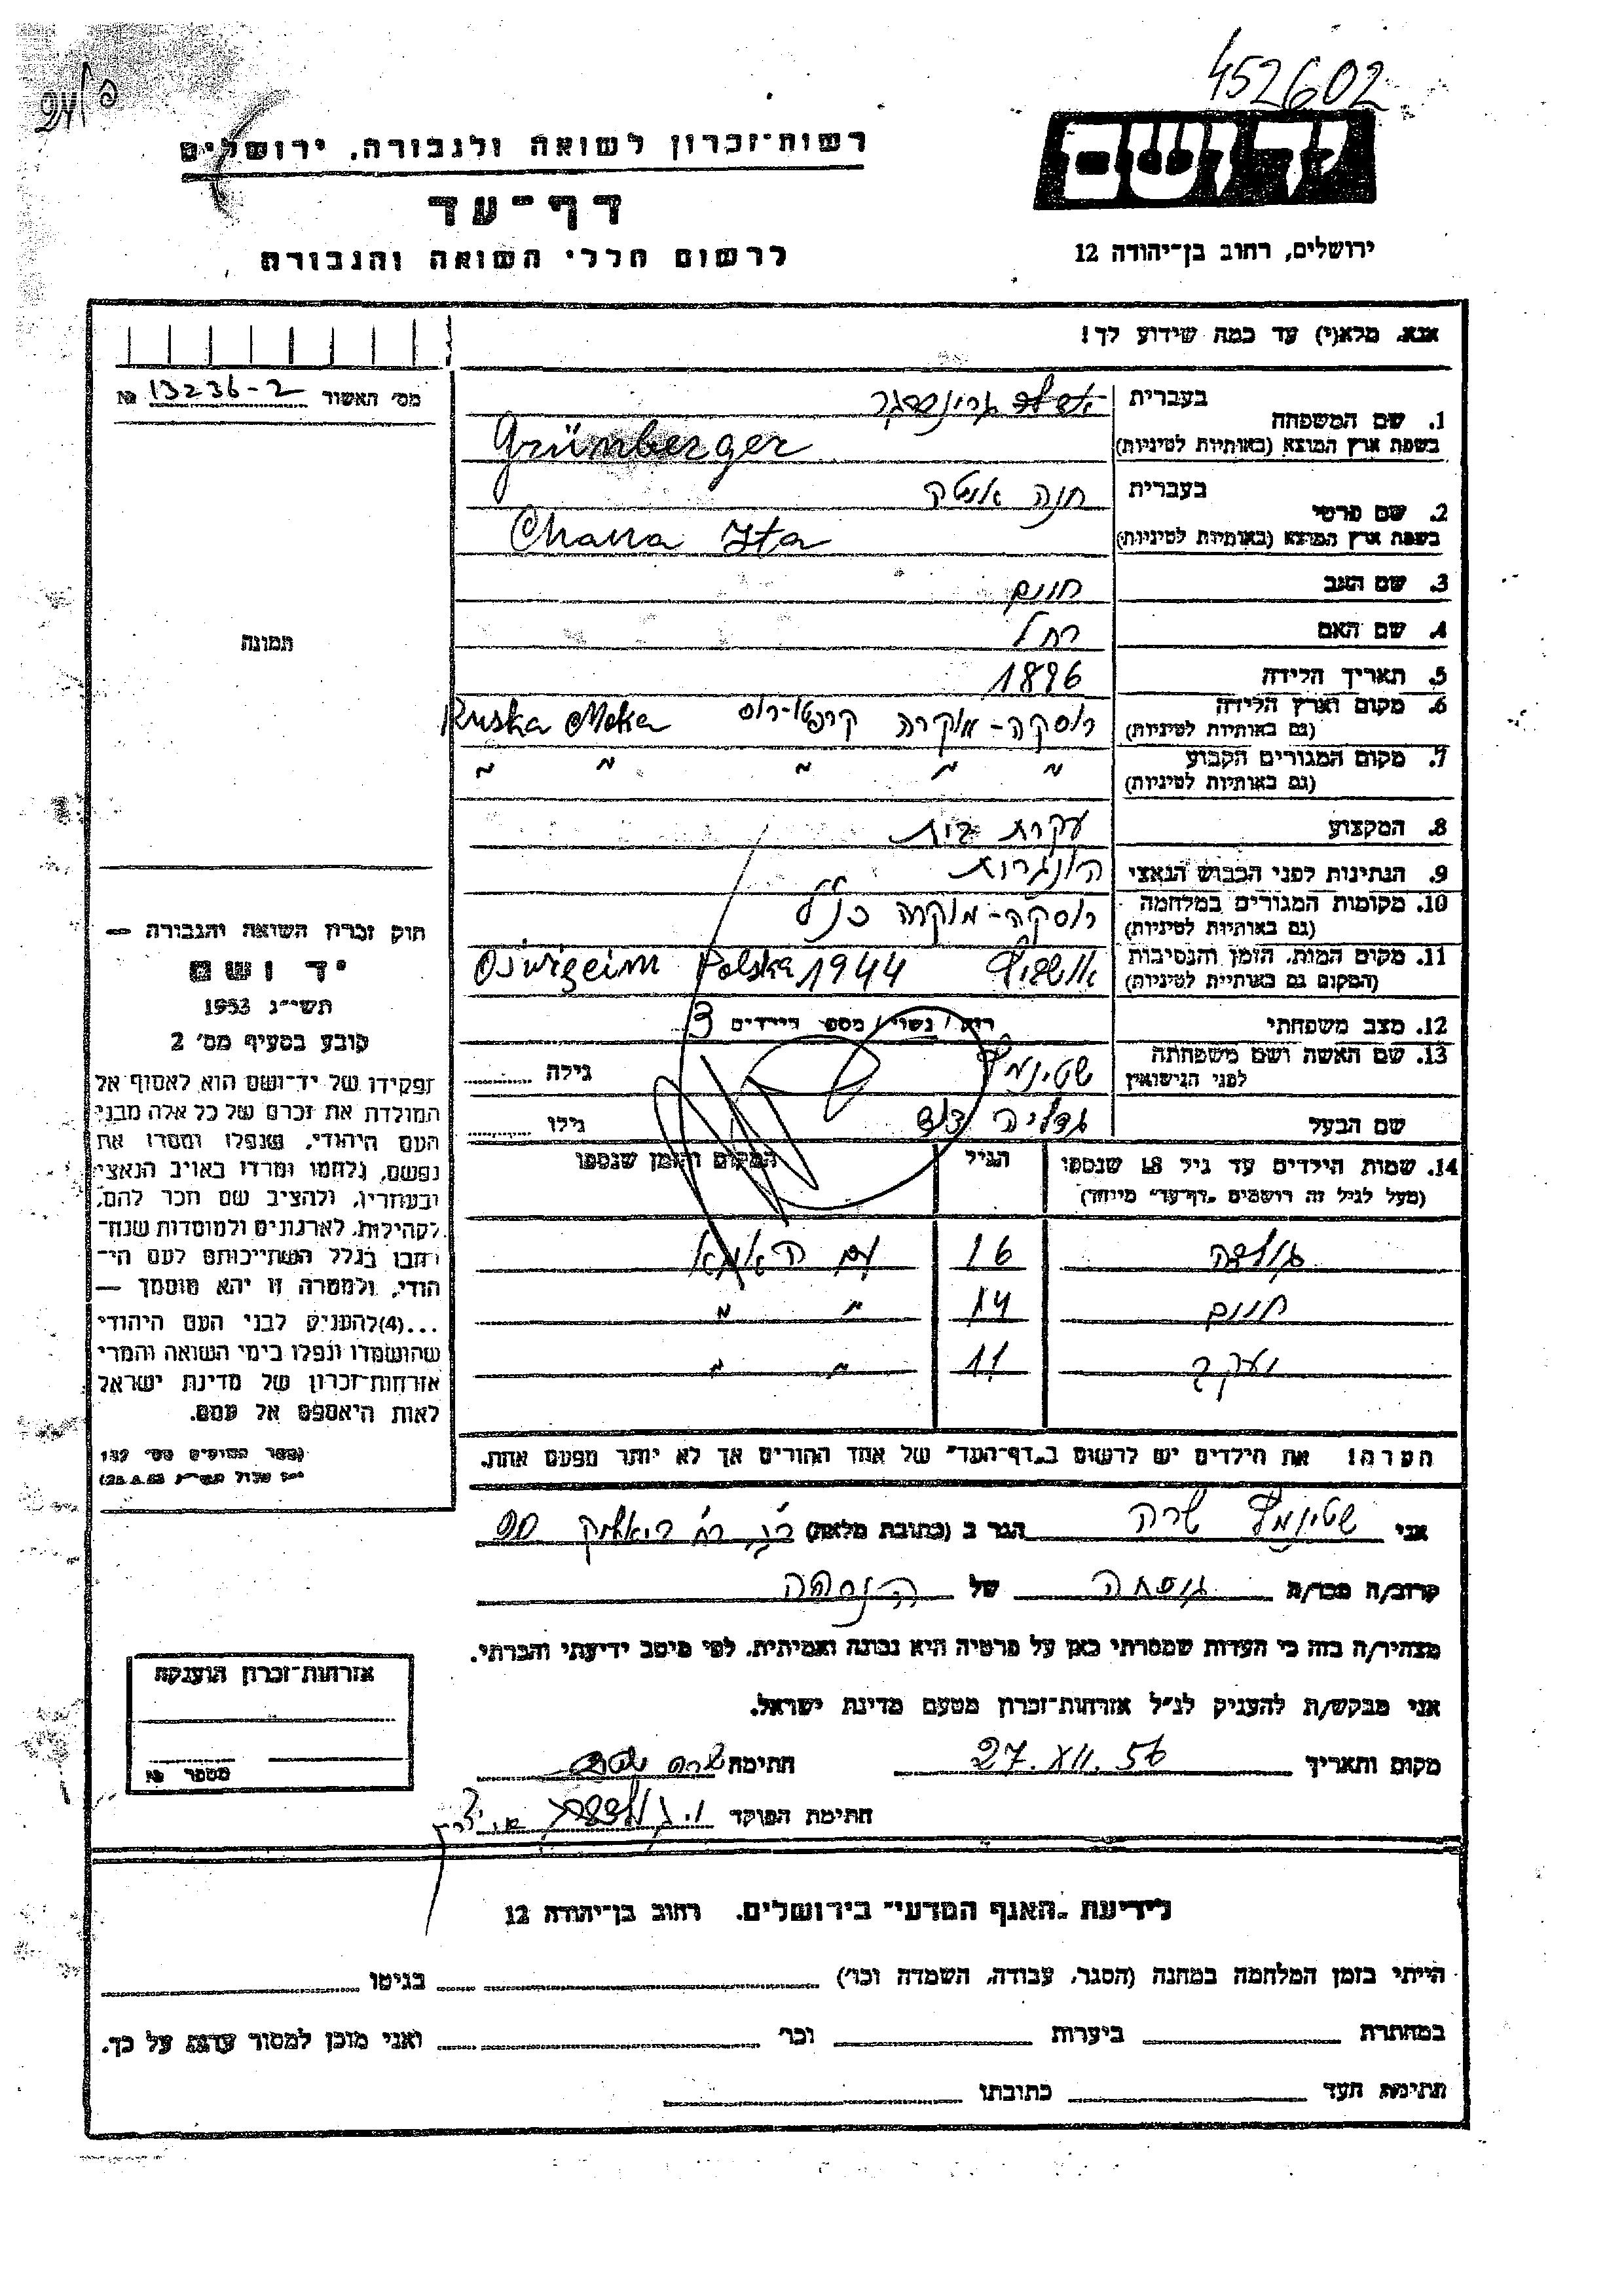 452602
יד ושם
ירושלים, רחוב בן־יהודה 12
רשות־זכרון לשואה ולגבורה, ירושלים
דף־עד
לרשום חללי השואה והגבורה
אנא, מלא(י) עד כמה שידוע לך!
מס׳ האשור 13236-2 №
1. שם המשפחה בעברית גרינברגר
בשפת ארץ המוצא (באותיות לטיניות) Grünberger
2. שם פרטי בעברית חנה איטה
בשפת ארץ המוצא (באותיות לטיניות) Chana Ita
3. שם האב חיים
4. שם האם רחל
5. תאריך הלידה 1896
6. מקום וארץ הלידה רוסקה-מוקרה קרפטו-רוס Ruska Mokra
(גם באותיות לטיניות)
7. מקום המגורים הקבוע " " " " "
(גם באותיות לטיניות)
8. המקצוע עקרת בית
9. הנתינות לפני הכבוש הנאצי הונגרית
10. מקומות המגורים במלחמה רוסקה-מוקרה כנ״ל
(גם באותיות לטיניות)
11. מקום המות, הזמן והנסיבות אושביץ 1944 Polska Oświęcim
(המקום גם באותיות לטיניות)
12. מצב משפחתי רוק / נשוי / מספר הילדים 3
13. שם האשה ושם משפחתה לפני הנישואין שטינמץ גילה
שם הבעל גדליה דוד גילו
14. שמות הילדים עד גיל 18 שנספו הגיל המקום והזמן שנספו
(מעל לגיל זה רושמים „דף־עד״ מיוחד)
גולדה 16 עם האמא
חיים 14 " "
יעקב 11 " "
הערה: את הילדים יש לרשום ב„דף־העד״ של אחד ההורים אך לא יותר מפעם אחת.
תמונה
חוק זכרון השואה והגבורה —
יד ושם
תשי״ג 1953
קובע בסעיף מס׳ 2
תפקידו של יד־ושם הוא לאסוף אל
המולדת את זכרם של כל אלה מבני
העם היהודי, שנפלו ומסרו את
נפשם, נלחמו ומרדו באויב הנאצי
ובעוזריו, ולהציב שם וזכר להם,
לקהילות, לארגונים ולמוסדות שנח־
רבו בגלל השתייכותם לעם הי־
הודי, ולמטרה זו יהא מוסמך —
...(4)להעניק לבני העם היהודי
שהושמדו ונפלו בימי השואה והמרי
אזרחות־זכרון של מדינת ישראל
לאות היאספם אל עמם.
אני שטינמץ שרה הגר ב (כתובת מלאה)
קרוב/ה מכר/ה גיסתה של הנספה
מצהיר/ה בזה כי העדות שמסרתי כאן על פרטיה היא נכונה ואמיתית, לפי מיטב ידיעתי והכרתי.
אני מבקש/ת להעניק לנ״ל אזרחות־זכרון מטעם מדינת ישראל.
מקום ותאריך 27.XII.56 חתימה
חתימת הפוקד
אזרחות־זכרון הוענקה
מספר №
לידיעת „האגף המדעי״ בירושלים, רחוב בן־יהודה 12
הייתי בזמן המלחמה במחנה (הסגר, עבודה, השמדה וכו׳) בגיטו
במחתרת ביערות וכו׳ ואני מוכן למסור עדות על כך.
חתימת העד כתובתו